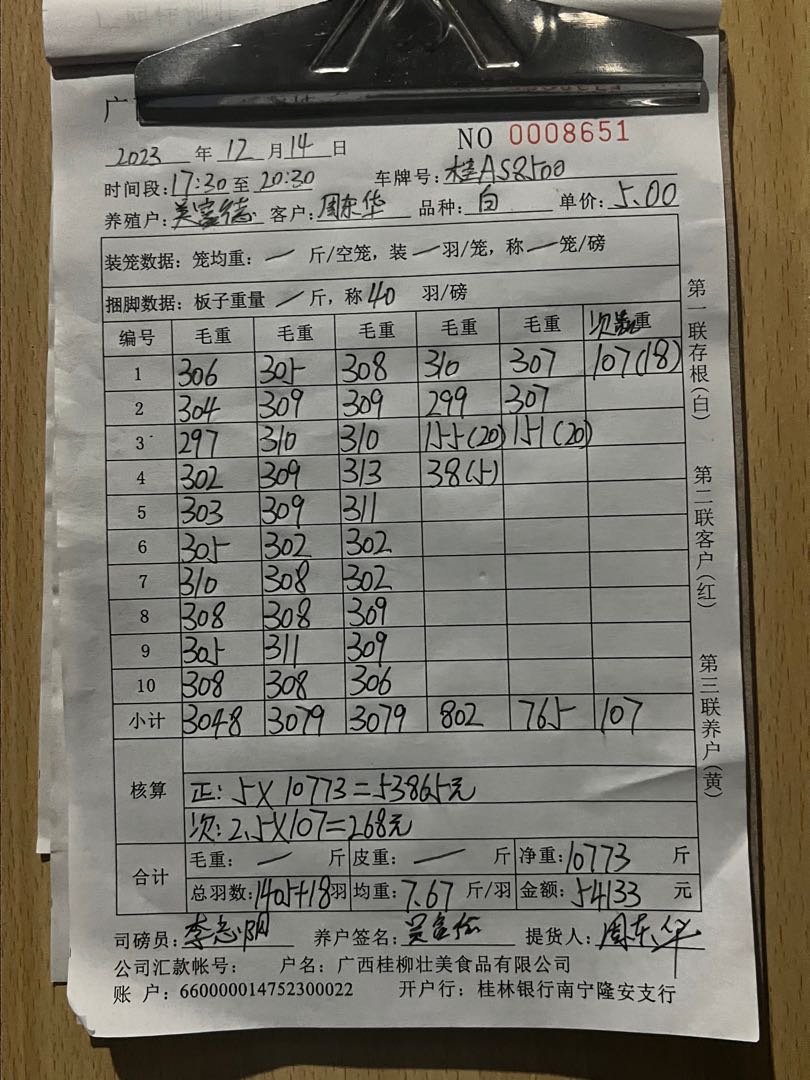 广
NO 0008651
2023 年 12 月 14 日
时间段: 17:30 至 20:30 车牌号: 桂AS8500
养殖户: 吴富德 客户: 周东华 品种: 白 单价: 5.00
装笼数据: 笼均重: 一 斤/空笼, 装 一 羽/笼, 称 一 笼/磅
捆脚数据: 板子重量 一 斤, 称 40 羽/磅
编号 毛重 毛重 毛重 毛重 毛重 次 重
1 306 305 308 310 307 107(18)
2 304 309 309 299 307
3 297 310 310 155(20) 151(20)
4 302 309 313 38(5)
5 303 309 311
6 305 302 302
7 310 308 302
8 308 308 309
9 305 311 309
10 308 308 306
小计 3048 3079 3079 802 765 107
核算
正: 5×10773=53865元
次: 2.5×107=268元
合计
毛重: 一 斤 皮重: 一 斤 净重: 10773 斤
总羽数: 1405+18 羽 均重: 7.67 斤/羽 金额: 54133 元
司磅员: 李志阴 养户签名: 提货人: 周东华
公司汇款帐号: 户名: 广西桂柳壮美食品有限公司
账 户: 660000014752300022 开户行: 桂林银行南宁隆安支行
第一联存根(白)
第二联客户(红)
第三联养户(黄)